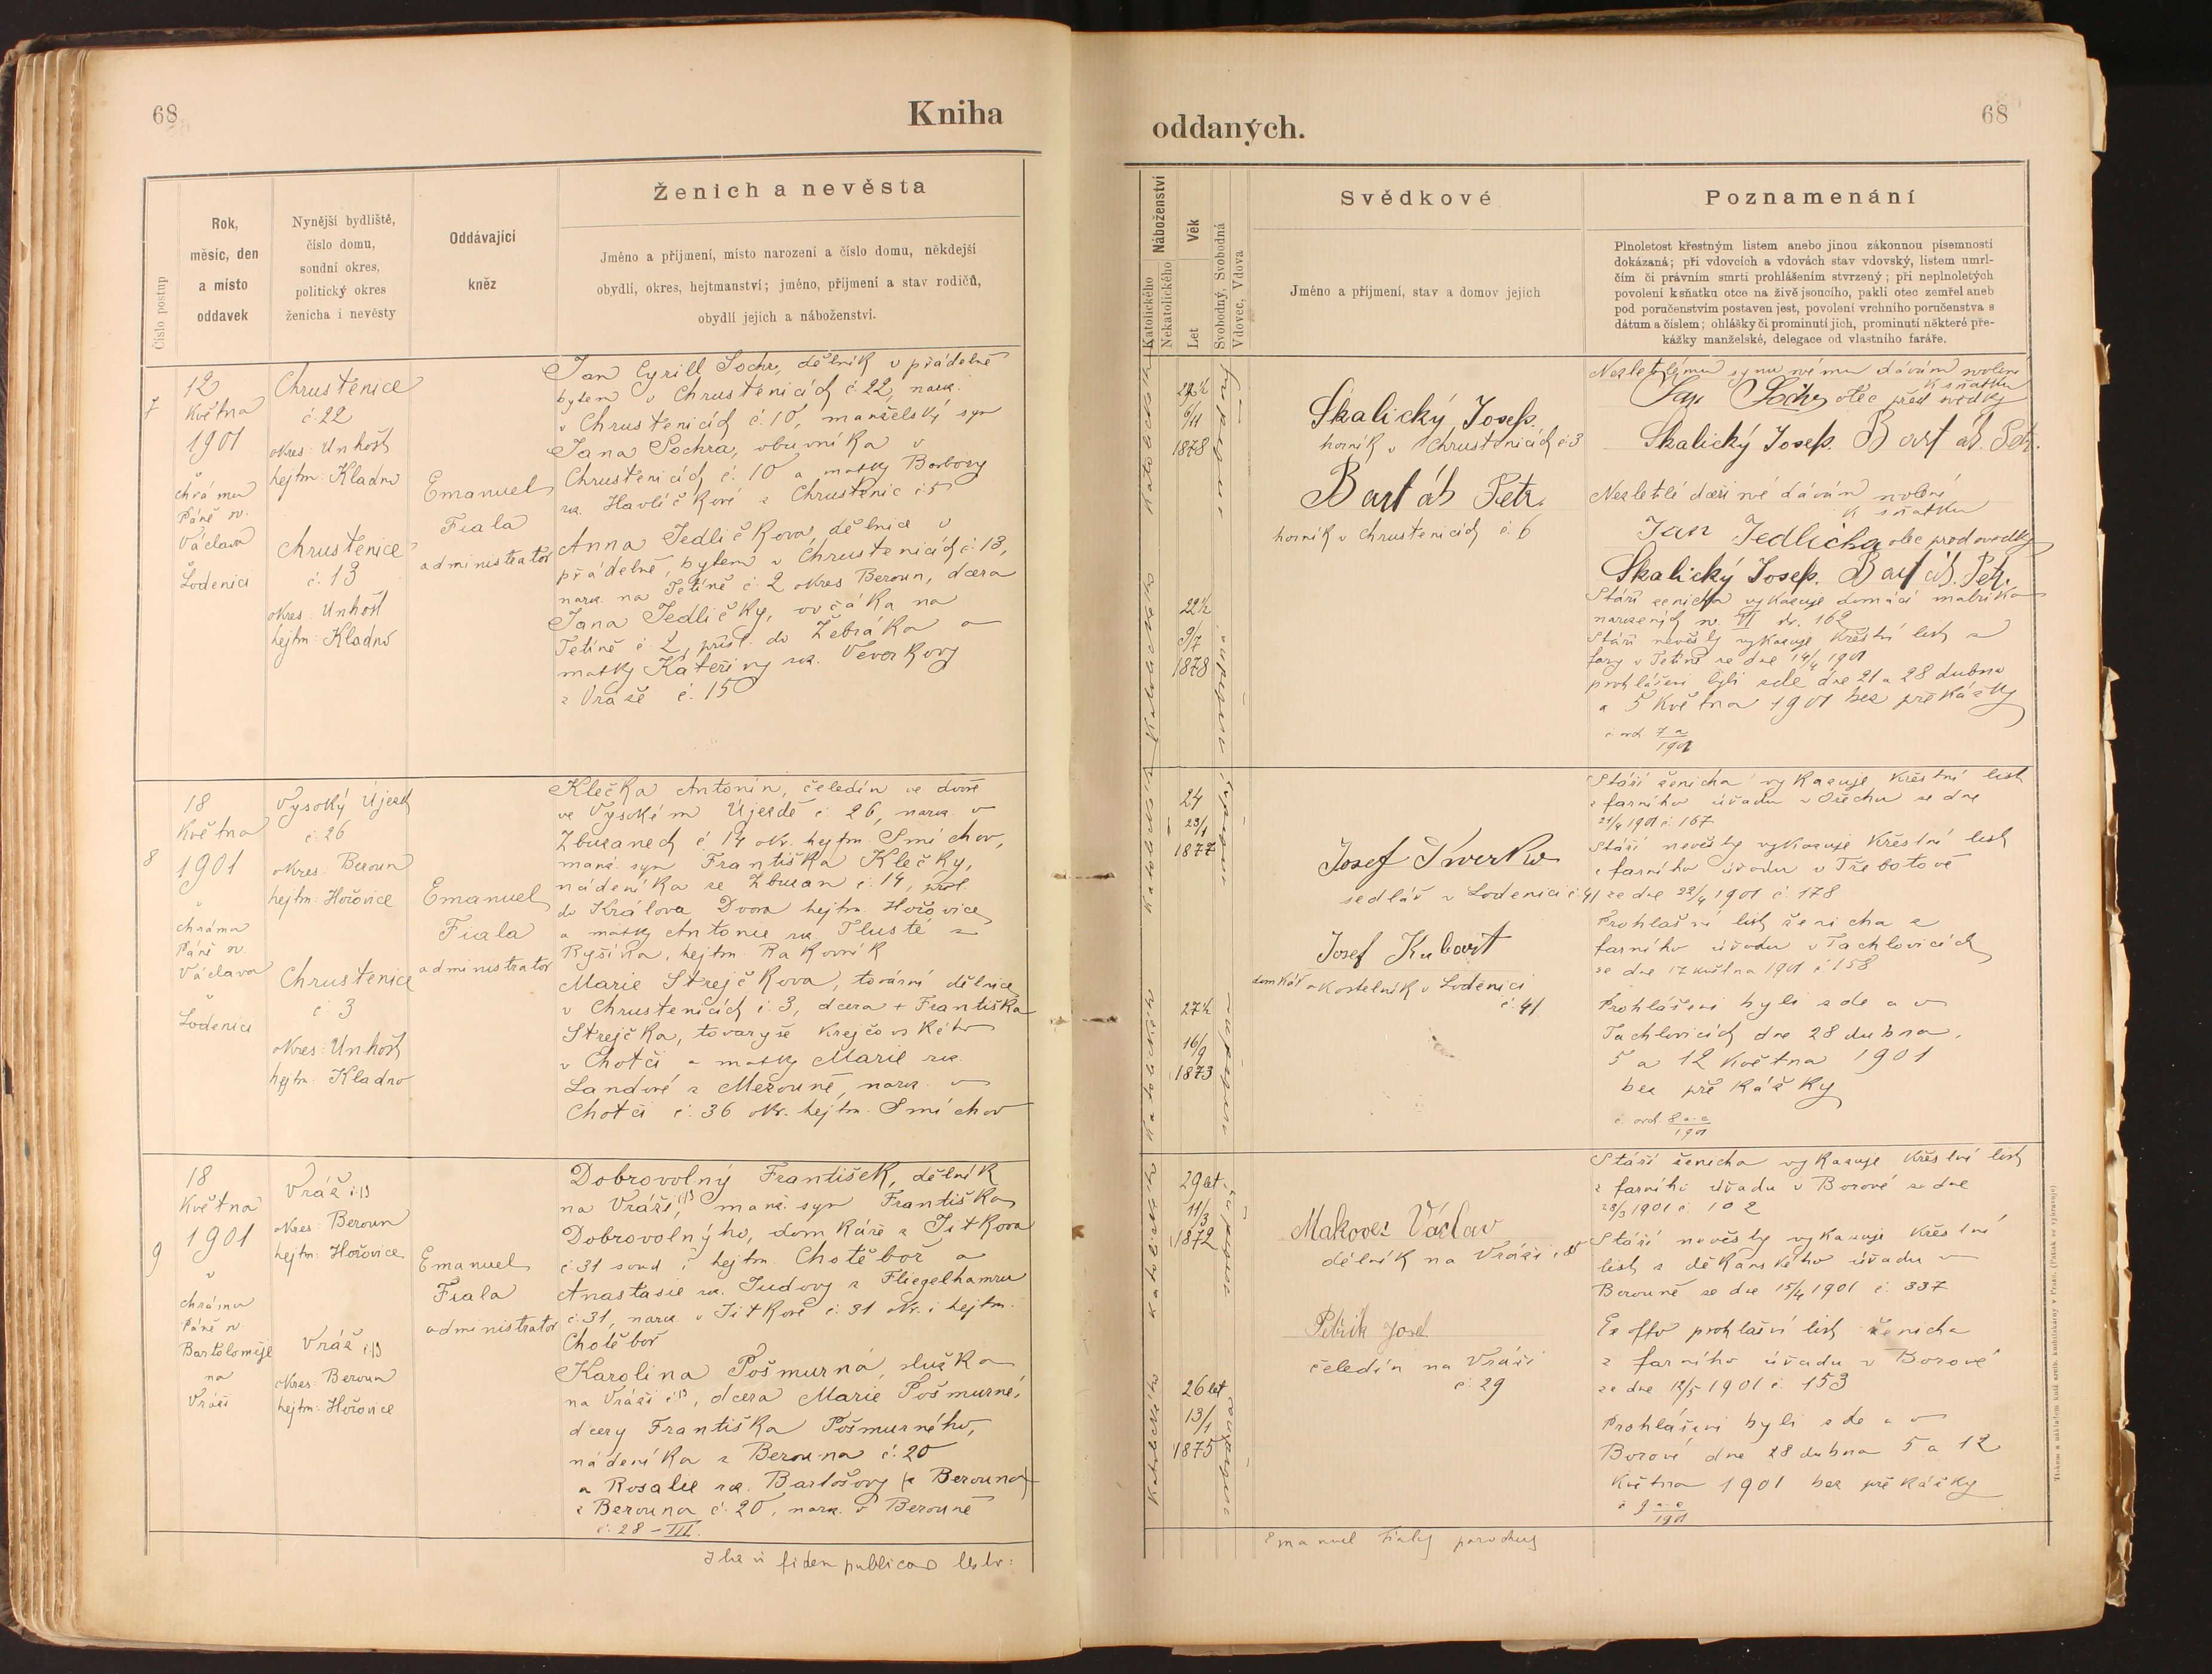 68
Kniha
Číslo postup
Rok,
měsíc, den
a místo
oddavek
Nynější bydliště,
číslo domu,
soudní okres,
politický okres
ženicha i nevěsty
Oddávající
kněz
Ženich a nevěsta
Jméno a příjmení, místo narození a číslo domu, někdejší
obydlí, okres, hejtmanství; jméno, příjmení a stav rodičů,
obydlí jejich a náboženství.
7
12
Května
1901
v
chrámu
Páně sv.
Václava
v
Loděnici
Chrustenice
č. 22
okres: Unhošť
hejtm: Kladno
Chrustenice
č. 13
okres: Unhošť
hejtm: Kladno
Emanuel
Fiala
administrator
Jan Cyrill Sochr, dělník v přádelně
bytem v Chrustenicích č. 22, naroz.
v Chrustenicích č. 10, manželský syn
Jana Sochra, obuvníka v
Chrustenicích č. 10 a matky Barbory
roz. Havlíčkové z Chrustenic č 5
Anna Jedličkova, dělnice v
přádelně, bytem v Chrustenicích č. 13,
naroz. na Tetíně č. 2 okres Beroun, dcera
Jana Jedličky, ovčáka na
Tetíně č. 2, přísl. do Žebráka a
matky Kateřiny roz. Veverkovy
z Vráže č. 15
8
18
Května
1901
v
chrámu
Páně sv.
Václava
v
Loděnici
Vysoký Újezd
č. 26
okres: Beroun
hejtm: Hořovice
Chrustenice
č. 3
okres: Unhošť
hejtm: Kladno
Emanuel
Fiala
administrator
Klečka Antonín, čeledín ve dvoře
ve Vysokém Újezdě č. 26, naroz. v
Zbuzanech č. 14 okr. hejtm. Smíchov,
manž. syn Františka Klečky,
nádeníka ze Zbuzan č. 14, přísl.
do Králova Dvora hejtm. Hořovice
a matky Antonie roz. Tlusté z
hejtm. Rakovník
Marie Strejčkova, tovární dělnice
v Chrustenicích č. 3, dcera + Františka
Strejčka, tovaryše krejčovského
v Chotči a matky Marie roz.
Landové z Mezouně, naroz. v
Chotči č. 36 okr. hejtm. Smíchov
9
18
Května
1901
v
chrámu
Páně sv
Bartoloměje
na
Vráži
Vráž č. 13
okres: Beroun
hejtm: Hořovice
Vráž č. 13
okres: Beroun
hejtm: Hořovice
Emanuel
Fiala
administrator
Dobrovolný František, dělník
na Vráži č. 13, manž. syn Františka
Dobrovolného, domkáře z Jitkova
č 31 soud i hejtm. Chotěboř a
Anastasie roz. Judovy z Fliegelhamru
č. 31, naroz. v Jitkově č. 31 okr. i hejtm.
Chotěboř
Karolina Pošmurná, služka
na Vráži č 13, dcera Marie Pošmurné,
dcery Františka Pošmurného,
nádeníka z Berouna č. 20
a Rosalie roz. Bartošovy (z Berouna)
z Berouna č. 20, naroz. v Berouně
č. 28 – III.
fidem publicam
oddaných.
68
Náboženství
Katolického
Nekatolického
Věk
Let
Svobodný, Svobodná
Vdovec, Vdova
Svědkové
Jméno a příjmení, stav a domov jejich
Poznamenání
Plnoletost křestným listem anebo jinou zákonnou písemností
dokázaná; při vdovcích a vdovách stav vdovský, listem umrl-
čím či právním smrti prohlášením stvrzený; při neplnoletých
povolení k sňatku otce na živě jsoucího, pakli otec zemřel aneb
pod poručenstvím postaven jest, povolení vrchního poručenstva s
dátum a číslem; ohlášky či prominutí jich, prominutí některé pře-
kážky manželské, delegace od vlastního faráře.
Katolického
1878
svobodný
Katolického
22½
9/7
1878
svobodna
Skalický Josef.
horník v Chrustenicích č 3
Barták Petr.
horník v Chrustenicích č. 6
Nezletilému synu mému dávám svolení
k sňatku
Jan Sochr otec před svědky
Skalický Josef. Barták. Petr.
Nezletilé dceři mé dávám svolení
k sňatku
Jan Jedlicka otec pred svedky
Skalický Josef. Barták. Petr.
Stáří ženicha vykazuje domácí matrika
narozených sv. VI str. 162
Stáří nevěsty vykazuje křestní list z
fary v Tetíně ze dne 14/4 1901
prohlášeni byli zde dne 21 a 28 dubna
a 5 Května 1901 bez překážky
č. ord. 7 a
1901
Katolického
24
23/1
1877
svobodný
Katolického
27½
16/9
1873
svobodna
sedlák v Loděnici č. 41
Josef Kubart
domkář a kostelník v Loděnici
č. 41
Stáří ženicha vykazuje křestní list
z farního úřadu v Ořechu ze dne
21/4 1901 č. 167
Stáří nevěsty vykazuje křestní list
z farního úřadu v Třebotově
ze dne 22/4 1901 č. 178
Prohlašní list ženicha z
farního úřadu v Tachlovicích
ze dne 17 května 1901 č 158
Prohlášeni byli zde a v
Tachlovicích dne 28 dubna,
5 a 12 května 1901
bez překážky
č. ord. 8 a-c
1901
Katolického
29 let
11/3
1872
svobodný
Katolického
26 let
13/1
1875
svobodna
Makovec Václav
dělník na Vráži č. 8
Petřík Josef
čeledín na Vráži
č. 29
Stáří ženicha vykazuje křestní list
z farního úřadu v Borové ze dne
28/3 1901 č. 102
Stáří nevěsty vykazuje křestní
list z děkanského úřadu v
Berouně ze dne 15/4 1901 č. 337
Ex offo prohlašní list ženicha
z farního úřadu v Borové
ze dne 12/5 1901 č. 153
Prohlášeni byli zde a v
Borové dne 28 dubna 5 a 12
května 1901 bez překážky
č 9 a-e
1901
Emanuel Fiala parochus